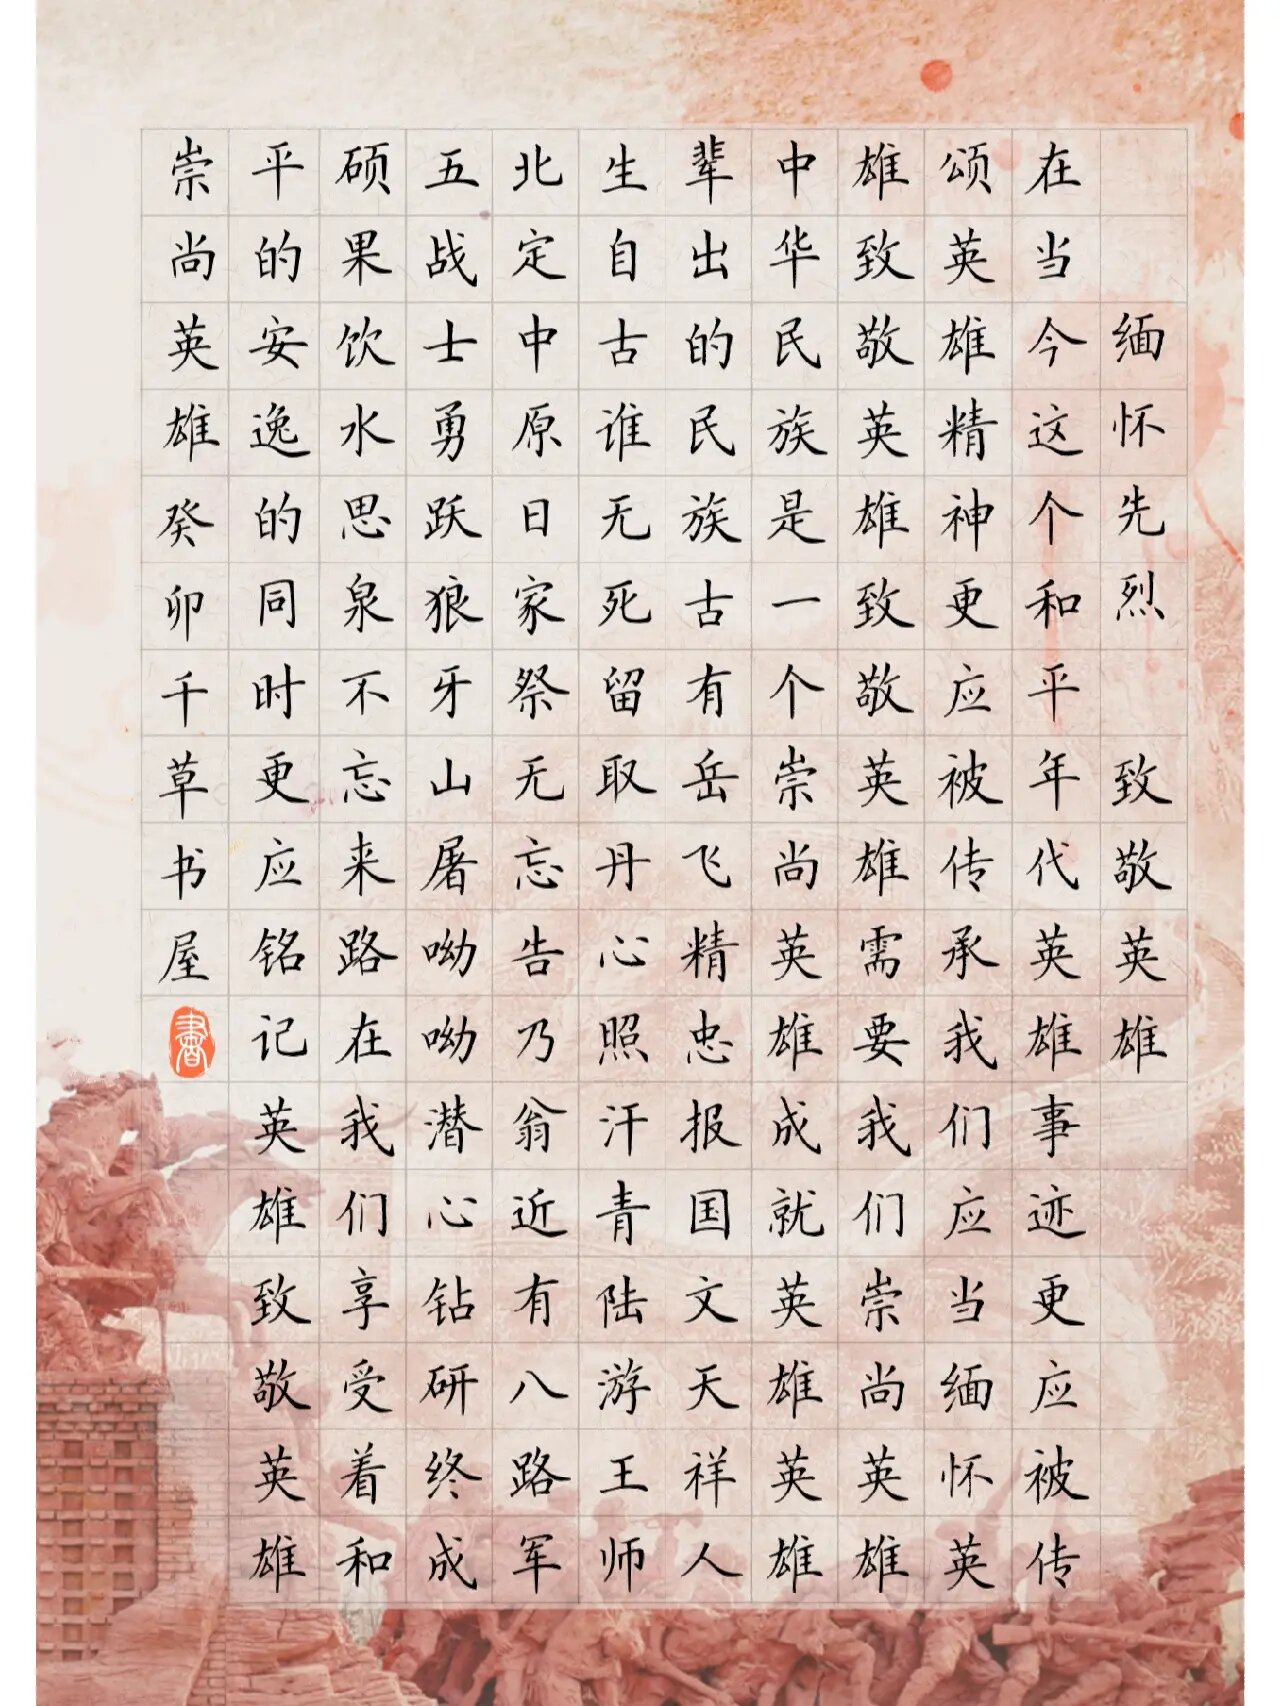 缅怀先烈 致敬英雄
在当今这个和平年代英雄事迹更应被传
颂英雄精神更应被传承我们应当缅怀英
雄致敬英雄致敬英雄需要我们崇尚英雄
中华民族是一个崇尚英雄成就英雄英雄
辈出的民族古有岳飞精忠报国文天祥人
生自古谁无死留取丹心照汗青陆游王师
北定中原日家祭无忘告乃翁近有八路军
五战士勇跃狼牙山屠呦呦潜心钻研终成
硕果饮水思泉不忘来路在我们享受着和
平的安逸的同时更应铭记英雄致敬英雄
崇尚英雄癸卯千草书屋
書